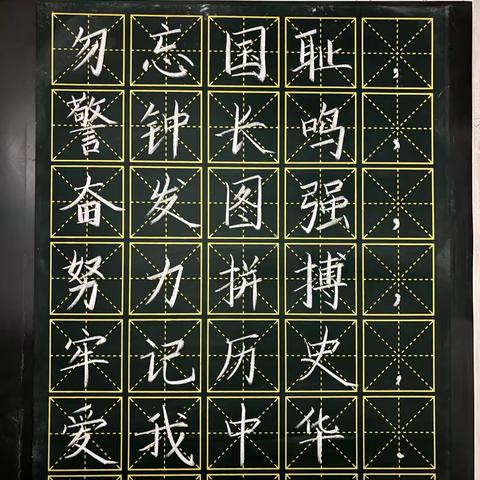 勿忘国耻,
警钟长鸣,
奋发图强,
努力拼搏,
牢记历史,
爱我中华.